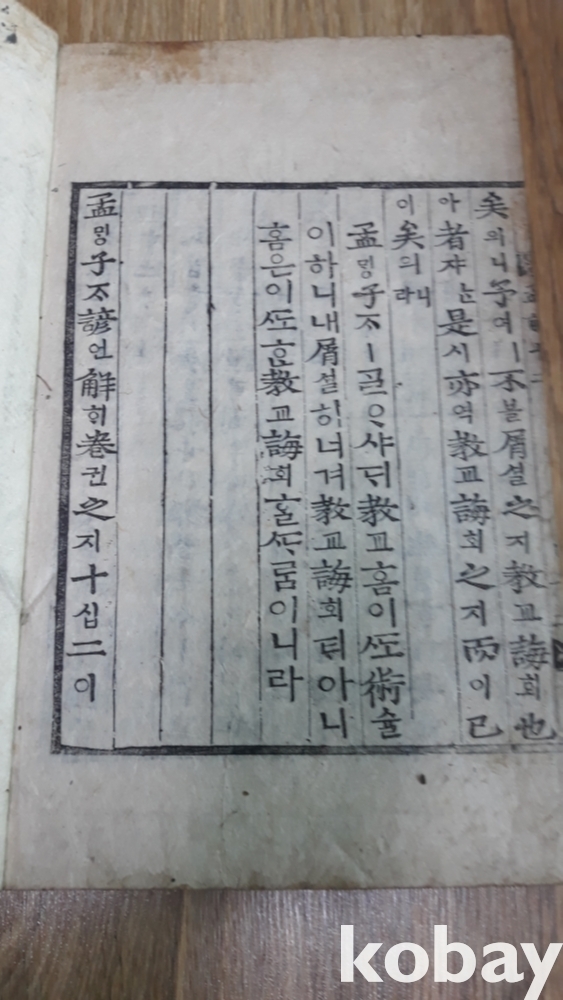 矣의니予여ㅣ不블屑셜之지教교誨회也
아者쟈ᄂᆞᆫ是시亦역教교誨회之지而이已
이矣의니라
孟밍子ᄌᆞㅣᄀᆞᆯᄋᆞ샤ᄃᆡ教교홈이ᄯᅩ術슐
이하니내屑셜히너겨教교誨회티아니
홈은이ᄯᅩᄒᆞᆫ教교誨회홀ᄯᆞ룸이니라
孟밍子ᄌᆞ諺언解히卷권之지十십二이
kobay